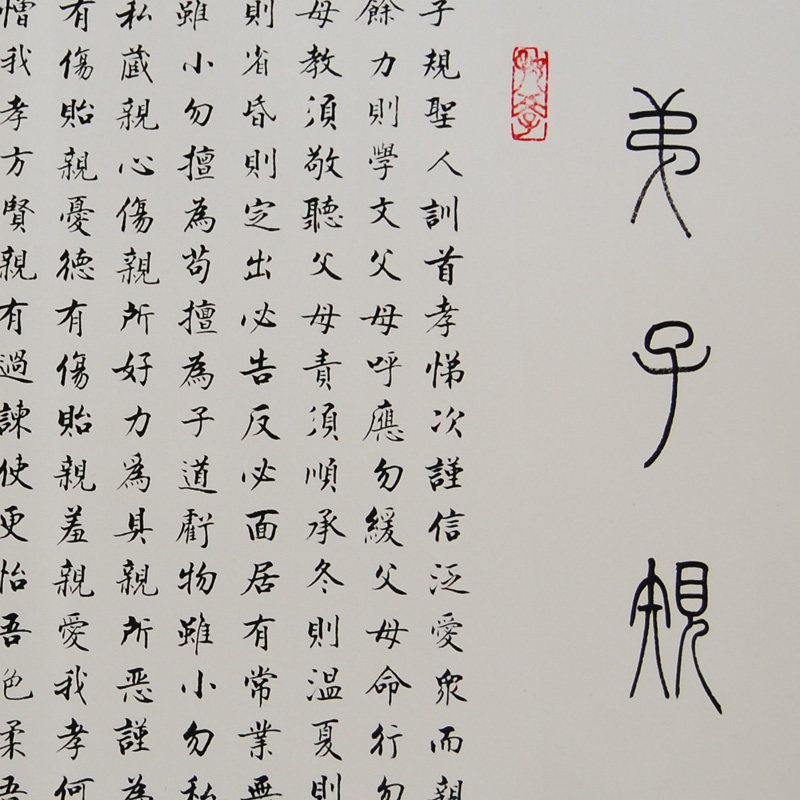 弟子規
子規聖人訓首孝悌次謹信泛愛眾而親
餘力則學文父母呼應勿緩父母命行勿
母教須敬聽父母責須順承冬則溫夏則
則省昏則定出必告反必面居有常業無
雖小勿擅為苟擅為子道虧物雖小勿私
私藏親心傷親所好力爲具親所惡謹為
有傷貽親憂德有傷貽親羞親愛我孝何
憎我孝方賢親有過諫使更怡吾色柔吾